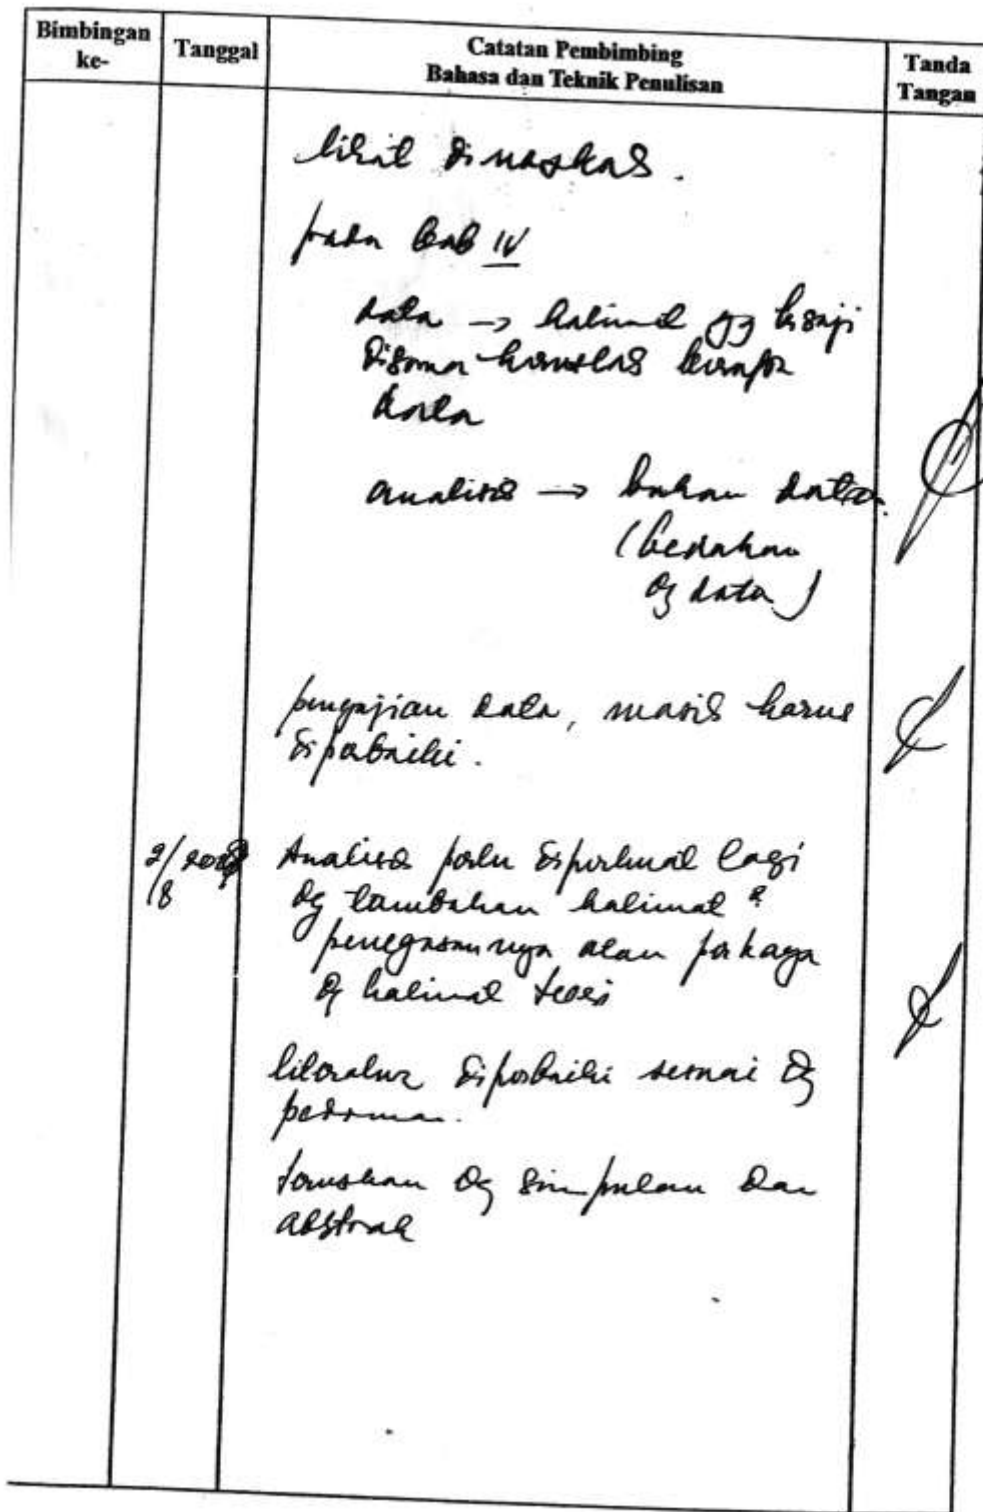 Bimbingan ke-
Tanggal
Catatan Pembimbing
Bahasa dan Teknik Penulisan
Tanda Tangan
lihat di naskah.
pada bab IV
data → kalimat yg
harus berapa
data
analisis → bukan data
(bedakan
dg data)
data, masih harus
diperbaiki.
2/8
Analisa perlu diperkuat lagi
dg tambahan kalimat²
penegasannya atau
dg kalimat
literatur diperbaiki sesuai dg
pedoman.
teruskan dg simpulan dan
abstrak